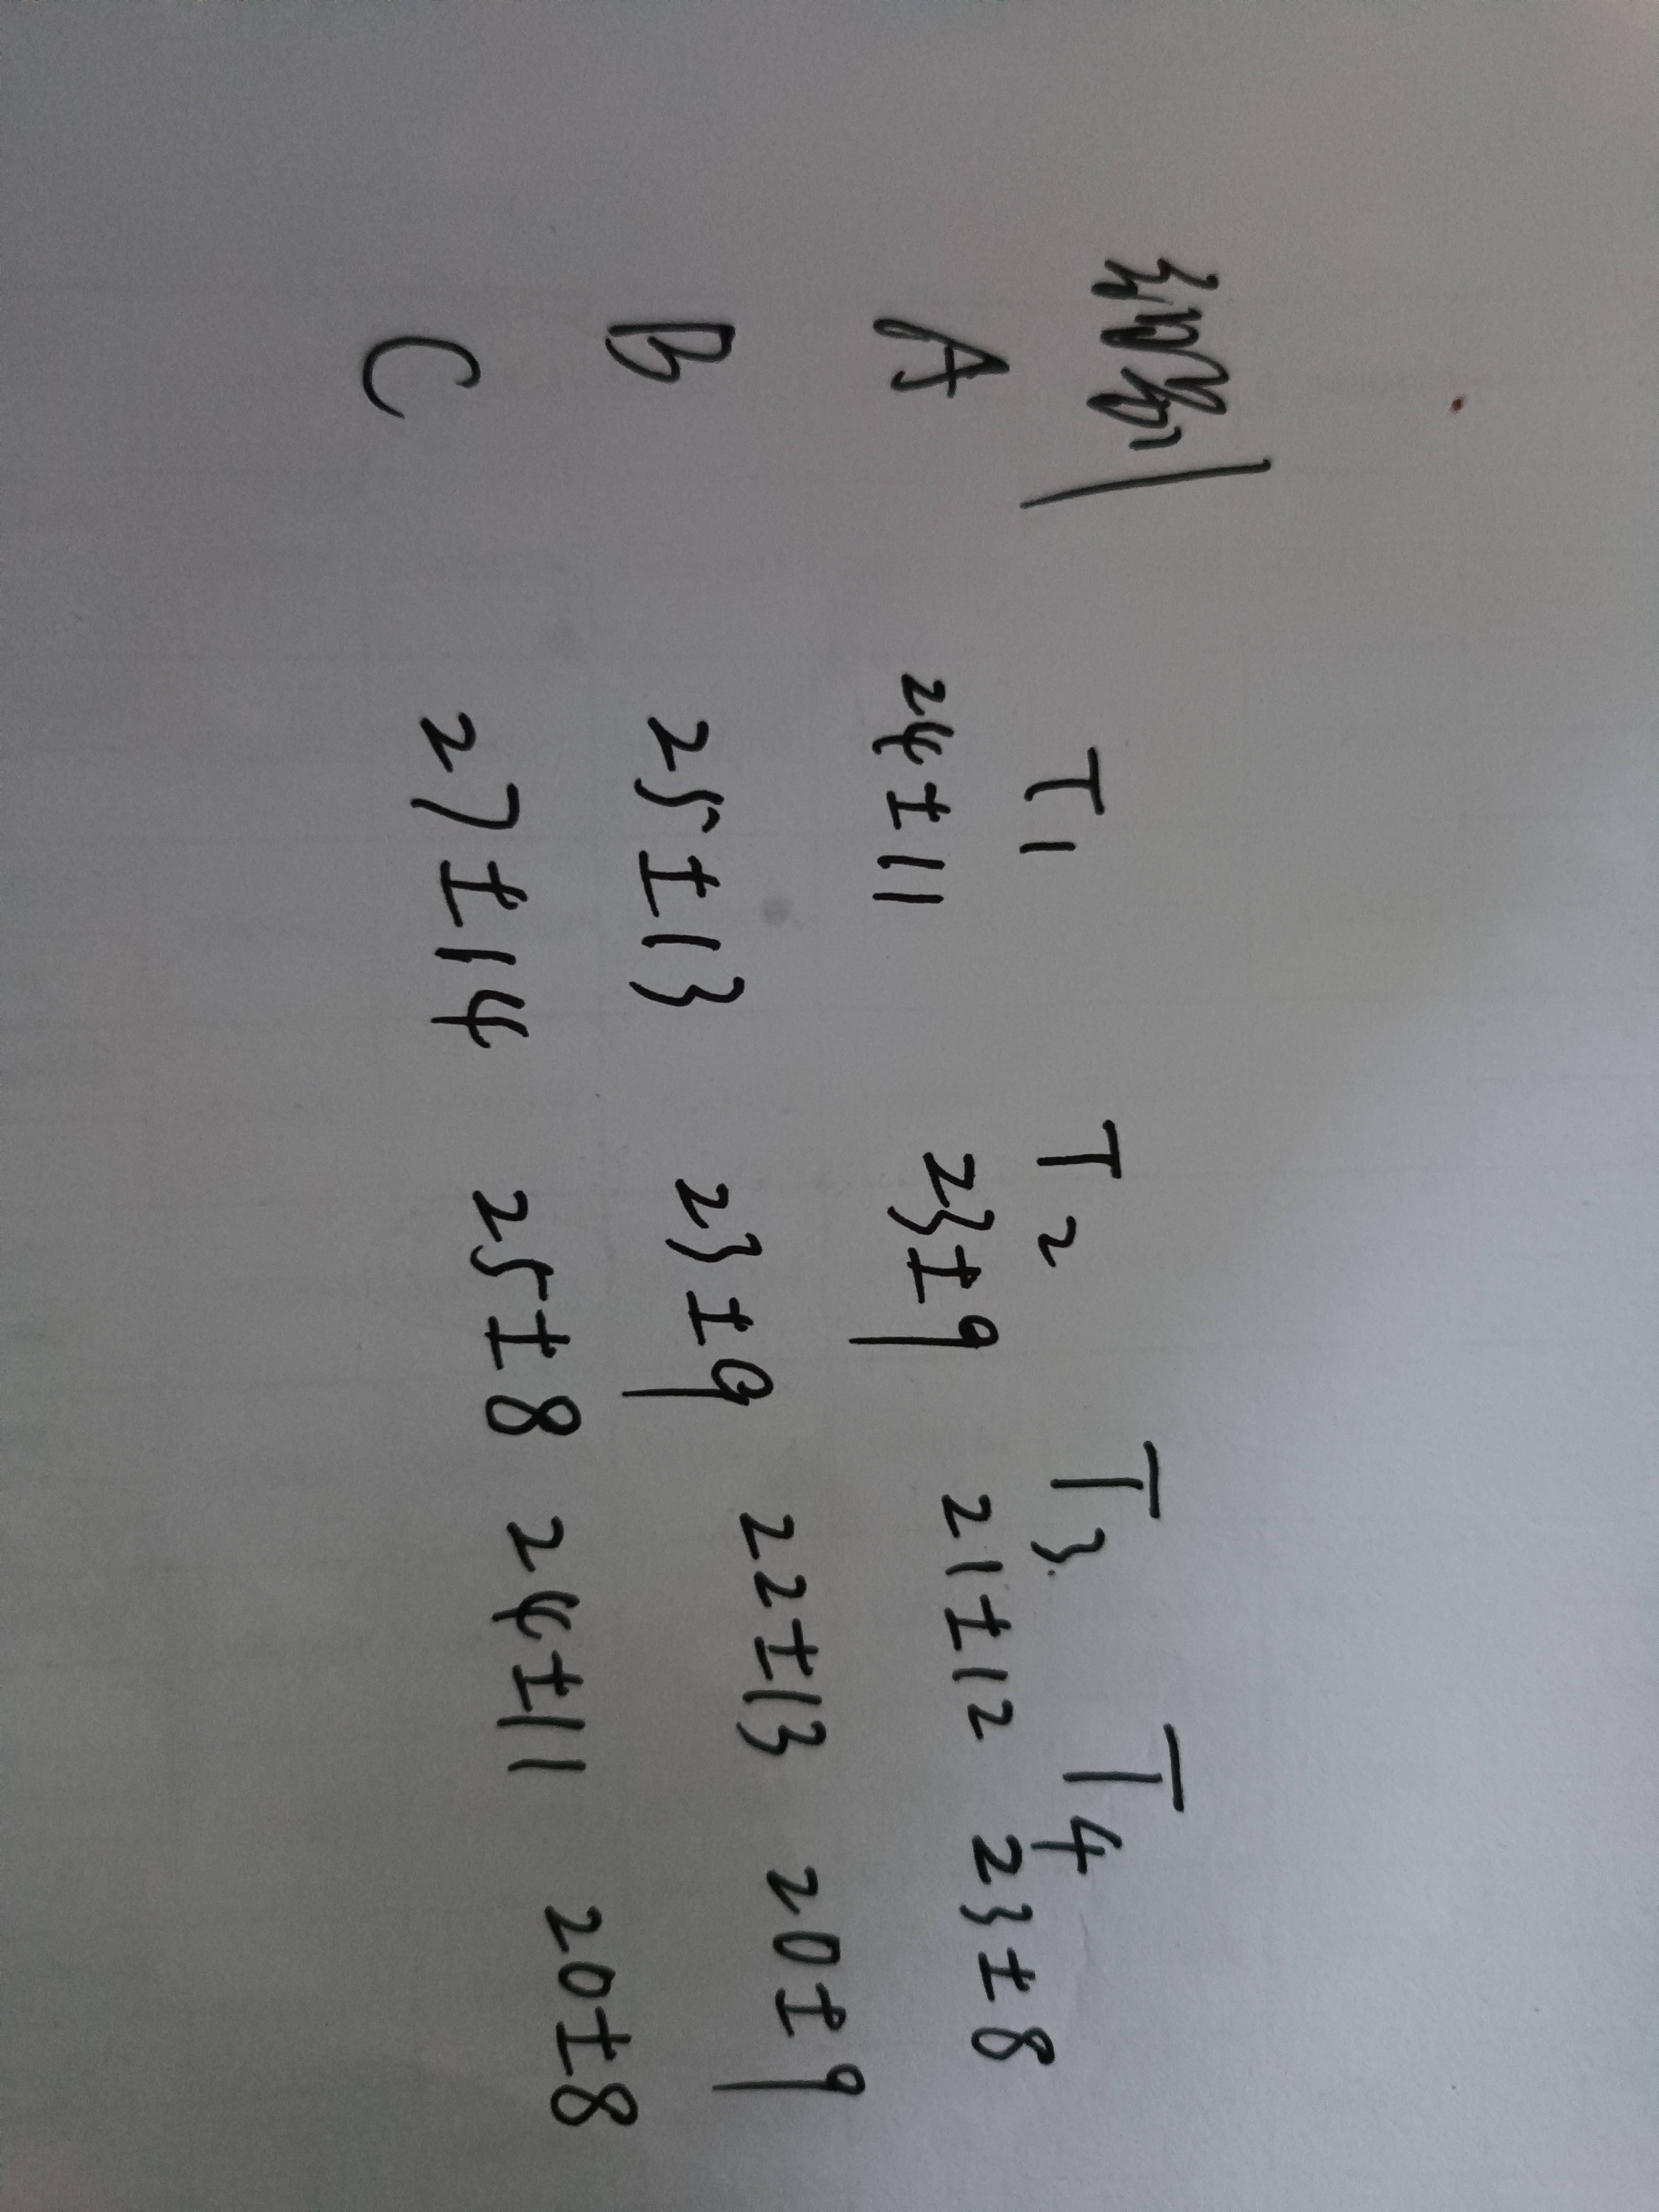 T1 T2 T3 T4
A 24±11 23±9 21±12 23±8
B 25±13 23±9 22±13 20±9
C 27±14 25±8 24±11 20±8